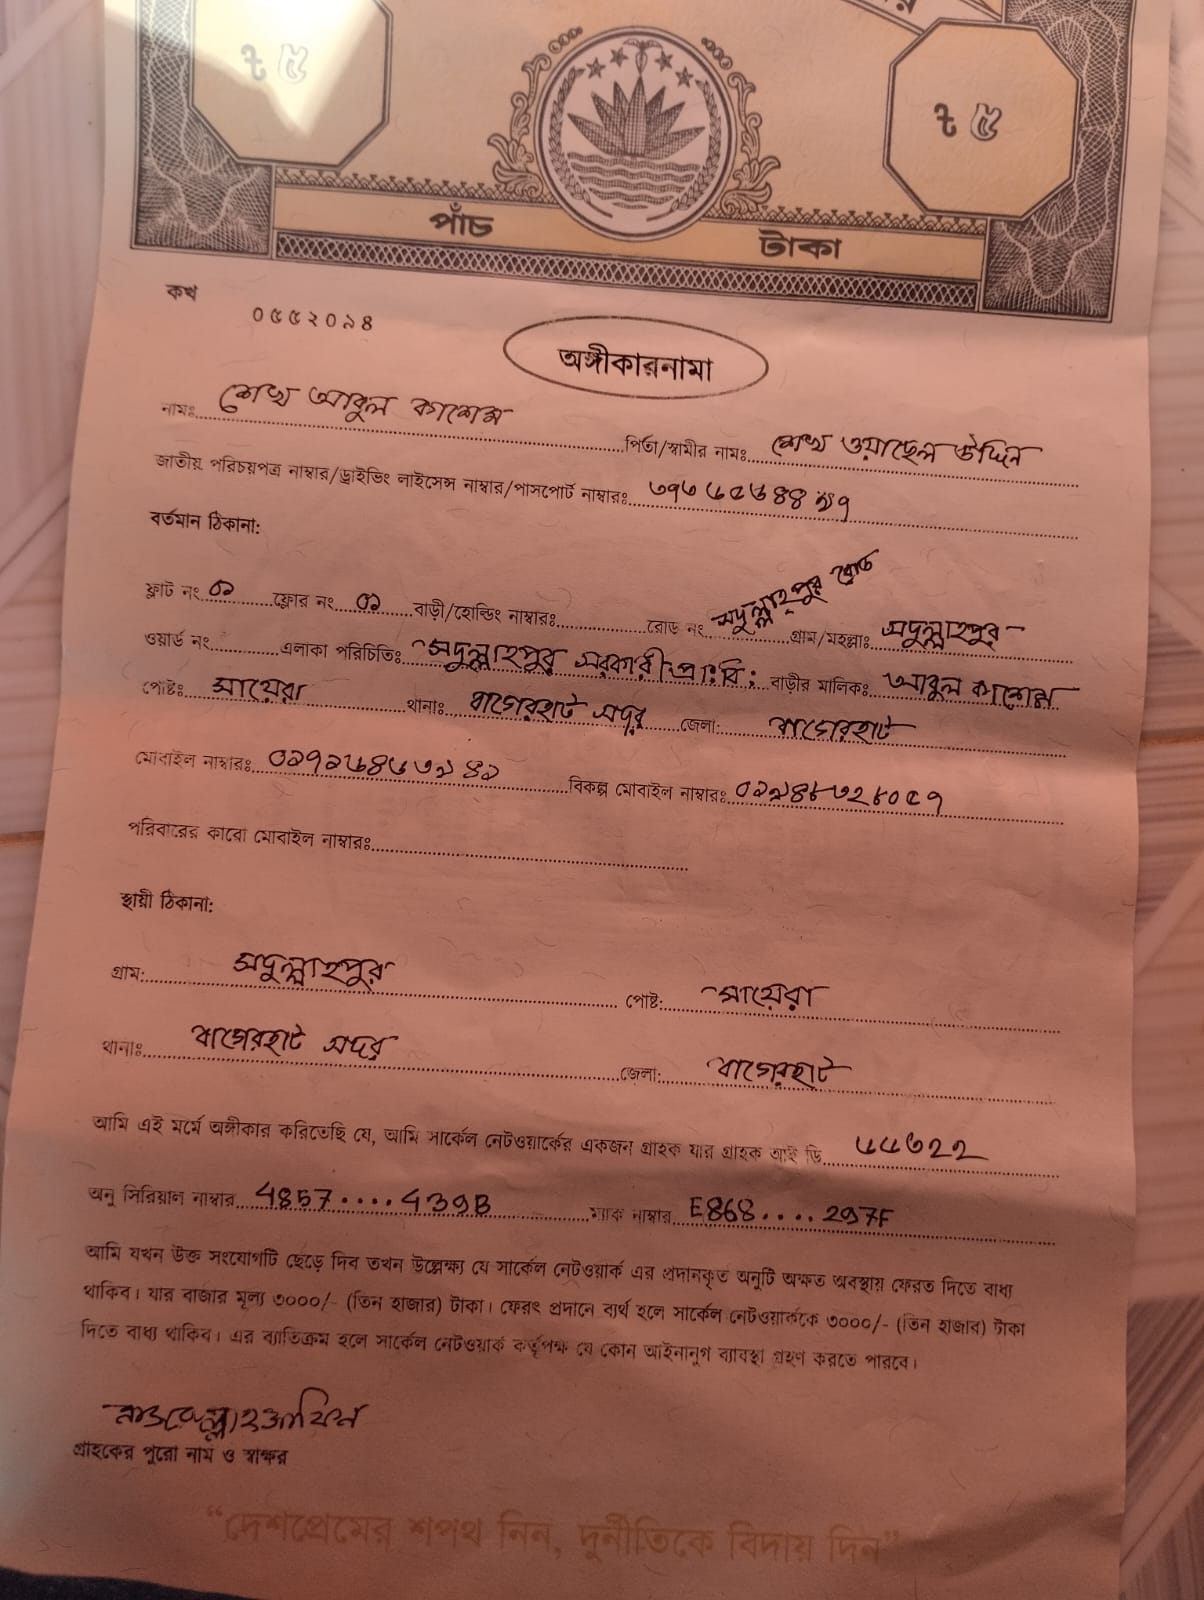 ৳ ৫
৳ ৫
পাঁচ টাকা
কখ
০৫৫২০১৪
অঙ্গীকারনামা
নামঃ শেখ আবুল কাশেম পিতা/স্বামীর নামঃ শেখ ওয়াছেল উদ্দিন
জাতীয় পরিচয়পত্র নাম্বার/ড্রাইভিং লাইসেন্স নাম্বার/পাসপোর্ট নাম্বারঃ
বর্তমান ঠিকানা:
ফ্লাট নং ০১ ফ্লোর নং ০১ বাড়ী/হোল্ডিং নাম্বারঃ রোড নং সদুল্লাহপুর রোড গ্রাম/মহল্লাঃ সদুল্লাহপুর
ওয়ার্ড নং এলাকা পরিচিতিঃ সদুল্লাহপুর সরকারী প্রাঃবিঃ বাড়ীর মালিকঃ আবুল কাশেম
পোষ্টঃ সায়েরা থানাঃ বাগেরহাট সদর জেলা: বাগেরহাট
মোবাইল নাম্বারঃ বিকল্প মোবাইল নাম্বারঃ
পরিবারের কারো মোবাইল নাম্বারঃ
স্থায়ী ঠিকানা:
গ্রাম: সদুল্লাহপুর পোষ্ট: সায়েরা
থানাঃ বাগেরহাট সদর জেলা: বাগেরহাট
আমি এই মর্মে অঙ্গীকার করিতেছি যে, আমি সার্কেল নেটওয়ার্কের একজন গ্রাহক যার গ্রাহক আই ডি
অনু সিরিয়াল নাম্বার 4857....439B ম্যাক নাম্বার E868....297F
আমি যখন উক্ত সংযোগটি ছেড়ে দিব তখন উল্লেক্ষ্য যে সার্কেল নেটওয়ার্ক এর প্রদানকৃত অনুটি অক্ষত অবস্থায় ফেরত দিতে বাধ্য
থাকিব। যার বাজার মূল্য ৩০০০/- (তিন হাজার) টাকা। ফেরৎ প্রদানে ব্যর্থ হলে সার্কেল নেটওয়ার্ককে ৩০০০/- (তিন হাজার) টাকা
দিতে বাধ্য থাকিব। এর ব্যাতিক্রম হলে সার্কেল নেটওয়ার্ক কর্তৃপক্ষ যে কোন আইনানুগ ব্যাবস্থা গ্রহণ করতে পারবে।
গ্রাহকের পুরো নাম ও স্বাক্ষর
“দেশপ্রেমের শপথ নিন, দুর্নীতিকে বিদায় দিন”